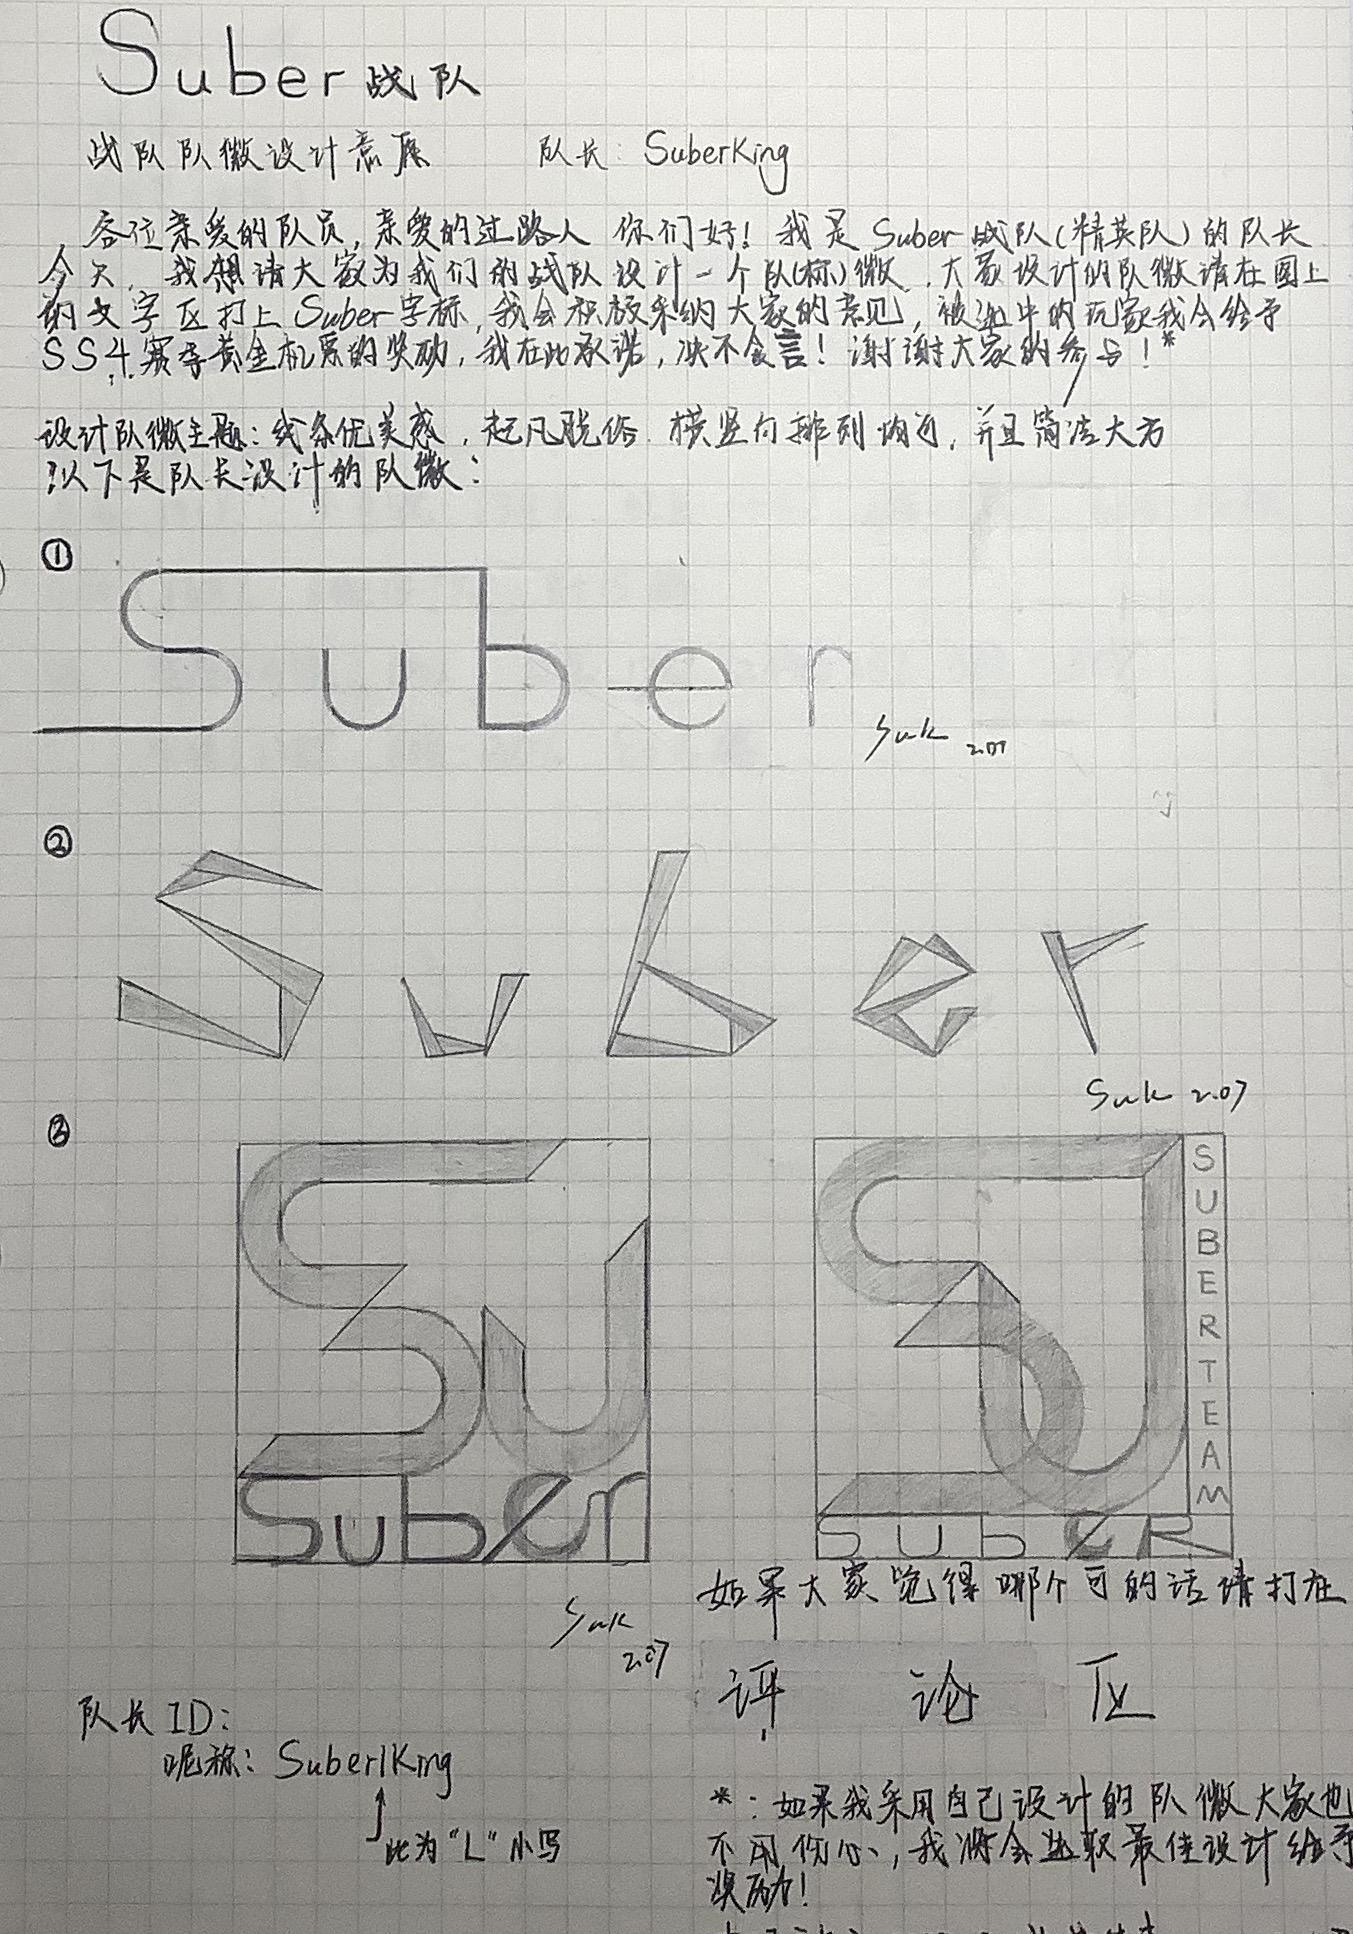 Suber战队
战队队徽设计意愿 队长: SuberKing
各位亲爱的队员,亲爱的过路人 你们好!我是Suber战队(精英队)的队长
今天,我想请大家为我们的战队设计一个队(标)徽,大家设计的队徽请在图上
的文字区打上Suber字标,我会积极采纳大家的意见,被选中的玩家我会给予
SS4赛季黄金机票的奖励,我在此承诺,决不食言!谢谢大家的参与!*
设计队徽主题:线条优美感,超凡脱俗.横竖向排列均匀,并且简洁大方
以下是队长设计的队徽:
①
Suber
Suk 2.07
②
Suber
Suk 2.07
③
SU
Suber
Suk
2.07
SU
SUBERTEAM
SUBER
如果大家觉得哪个可的话请打在
评论区
队长ID:
昵称: SuberlKing
此为“L”小写
*:如果我采用自己设计的队徽大家也
不用伤心,我将会选取最佳设计给予
奖励!